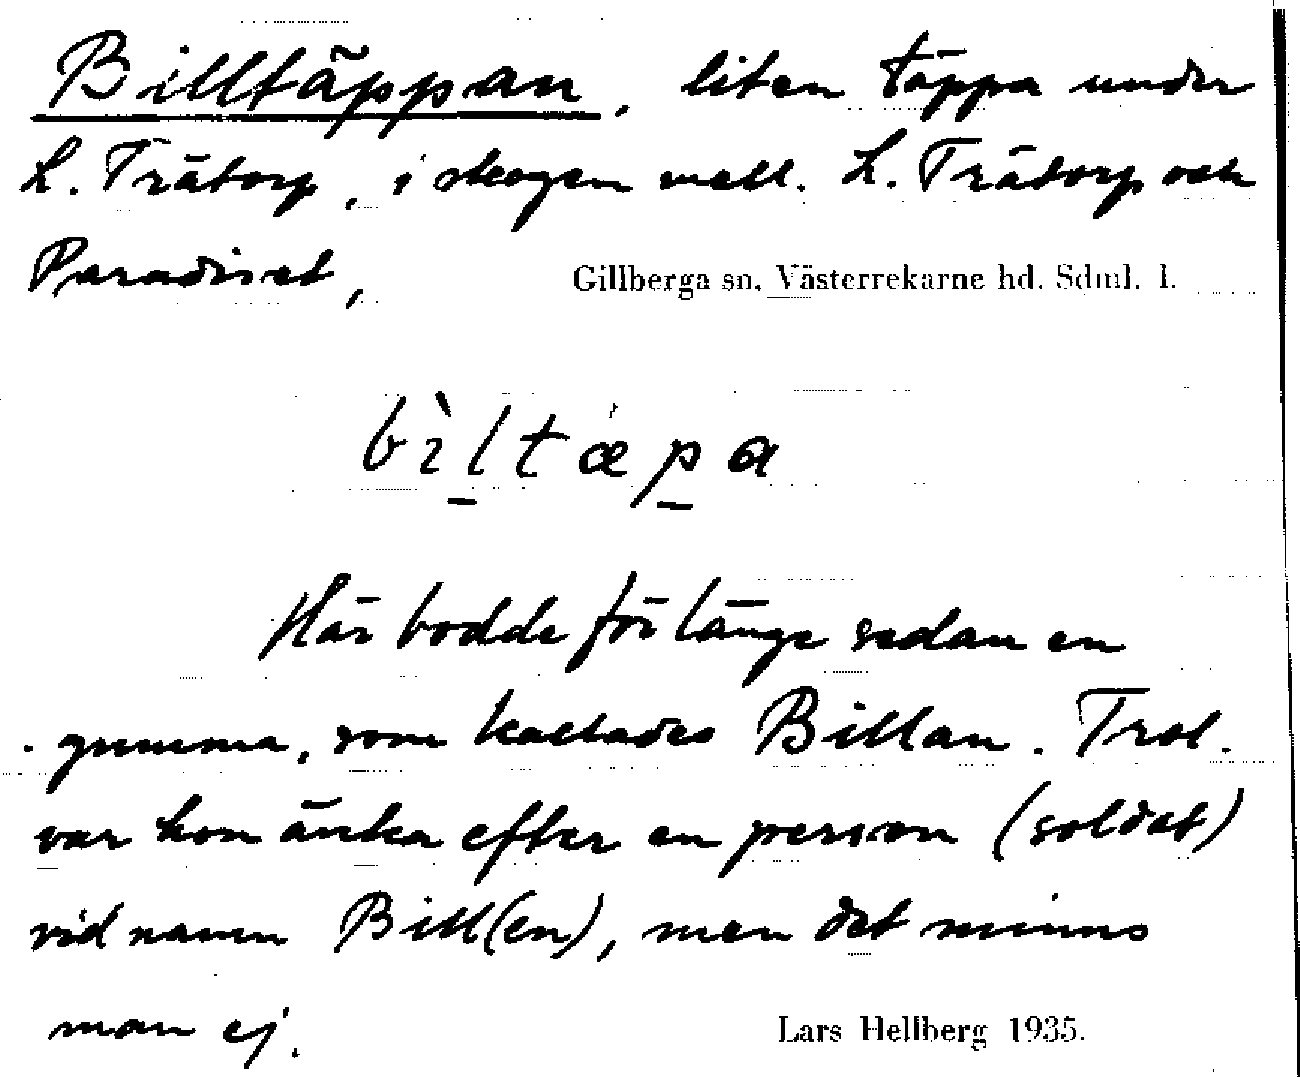 Billtäppan, liten täppa under
L. Trätorp, i skogen mell. L. Trätorp och
Paradiset,
Gillberga sn. Västerrekarne hd. Sdml. l.
bìltæpa
Här bodde för länge sedan en
gumma, som kallades Billan. Trol.
var hon änka efter en person (soldat)
vid namn Bill(en), men det minns
man ej.
Lars Hellberg 1935.